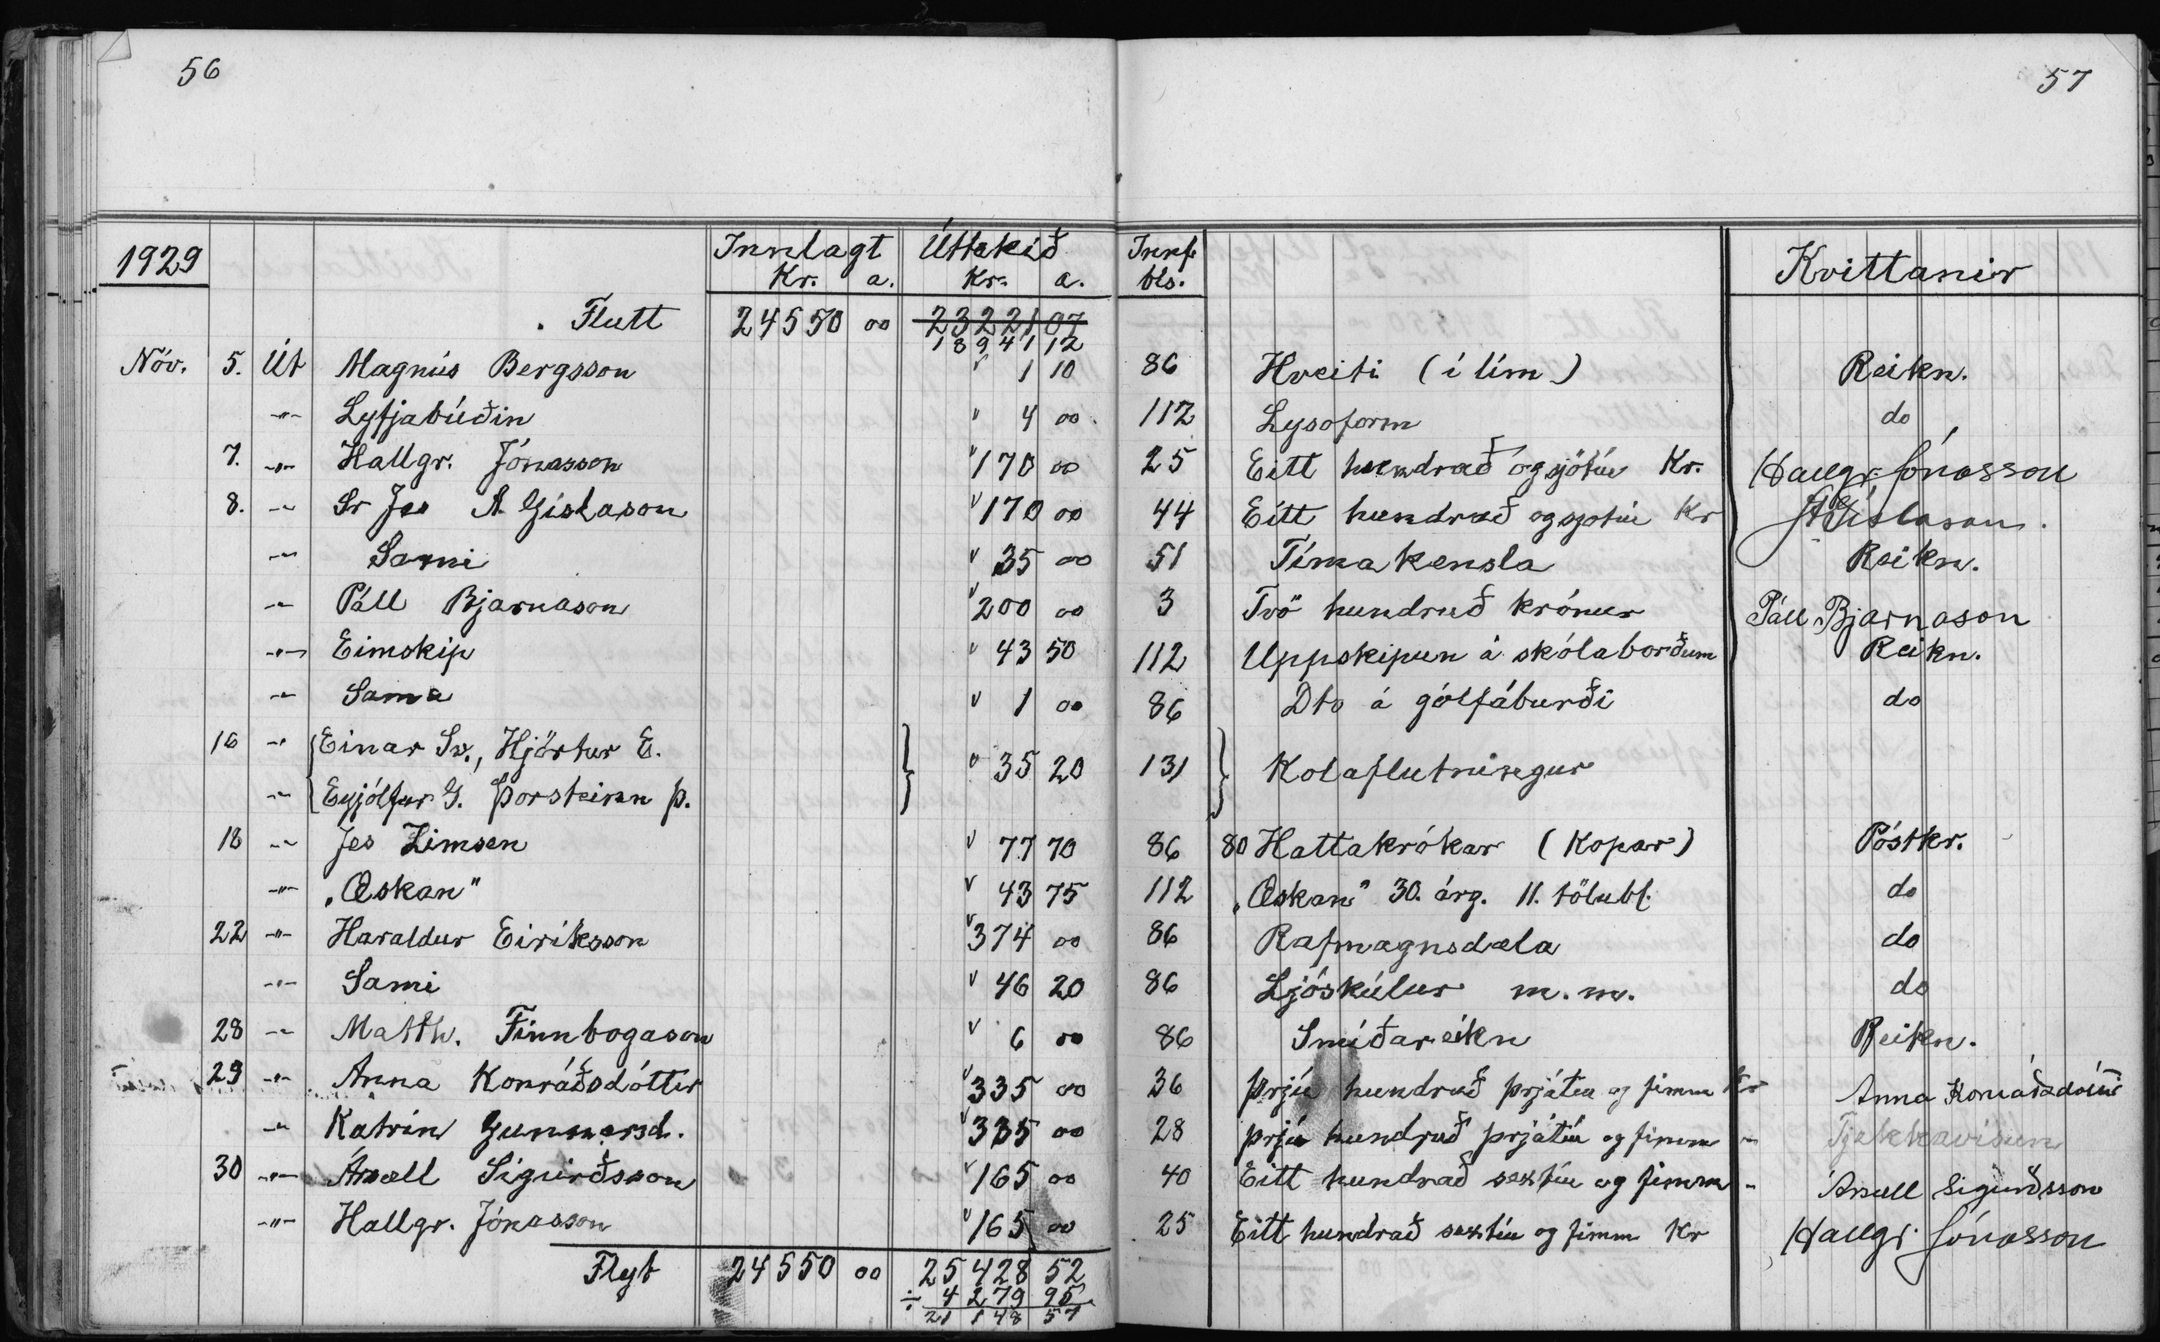 56
57
1929 Innlagt Úttekið Innf. Kvittanir
Kr. a. Kr. a. bls.
Flutt 24550 00 23221 07
18941 12
Nóv. 5. Út Magnús Bergsson 1 10 86 Hveiti (í lím) Reikn.
-"- Lyfjabúðin 4 00 112 Lysoform do
7. -"- Hallgr. Jónasson 170 00 25 Eitt hundrað og sjötíu Kr. Hallgr. Jónasson
8. -"- Sr Jes A Gíslason 170 00 44 Eitt hundrað og sjotíu Kr JAGíslason.
-"- Sami 35 00 51 Tímakensla Reikn.
-"- Páll Bjarnason 200 00 3 Tvö hundruð krónur Páll Bjarnason
-"- Eimskip 43 50 112 Uppskipun á skólaborðum Reikn.
-"- Sama 1 00 86 Dto á gólfáburði do
16 -"- Einar Sv., Hjörtur E. 35 20 131 Kolaflutningur
-"- Eyjólfur G. Þorsteinn Þ.
18 -"- Jes Zimsen 77 70 86 80 Hattakrókar (Kopar) Póstkr.
-"- „Æskan" 43 75 112 „Æskan" 30. árg. 11. tölubl. do
22 -"- Haraldur Eiríksson 374 00 86 Rafmagnsdæla do
-"- Sami 46 20 86 Ljóskúlur m.m. do
28 -"- Matth. Finnbogason 6 00 86 Smíðareikn Reikn.
29 -"- Anna Konráðsdóttir 335 00 36 Þrjú hundruð þrjátíu og fimm Kr Anna Konráðsdóttir
-"- Katrín Gunnarsd. 335 00 28 Þrjú hundruð þrjátíu og fimm - Tjekkávísun
30 -"- Ársæll Sigurðsson 165 00 40 Eitt hundrað sextíu og fimm - Ársæll Sigurðsson
-"- Hallgr. Jónasson 165 00 25 Eitt hundrað sextíu og fimm Kr Hallgr. Jónasson
Flyt 24550 00 25428 52
÷ 4279 95
21148 57